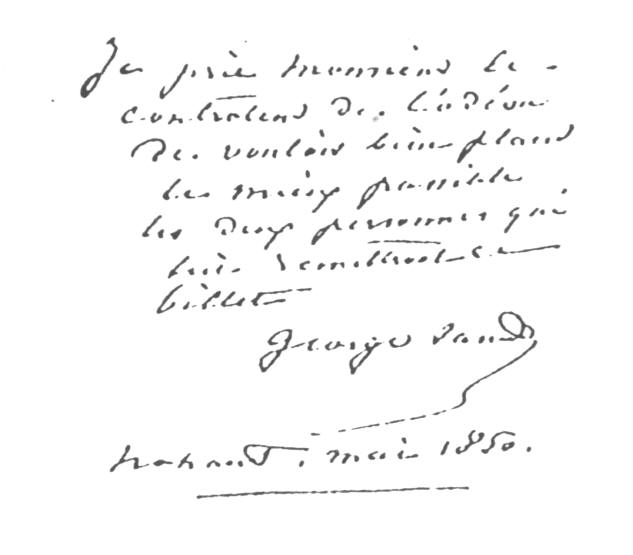 Je prie monsieur le
contrôleur de l'odéon
de vouloir bien placer
le mieux possible
les deux personnes qui
lui remettront ce
billet
George Sand
nohant, mai 1850.